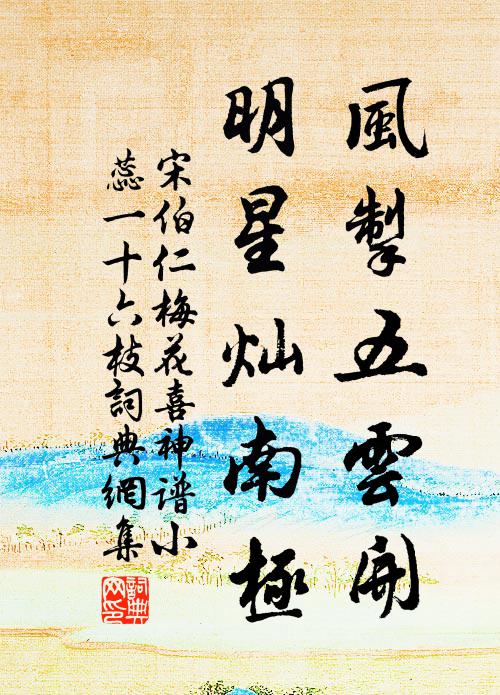 風掣五雲開
明星灿南極
宋伯仁梅花喜神谱小
蕊一十六枝詞典網集